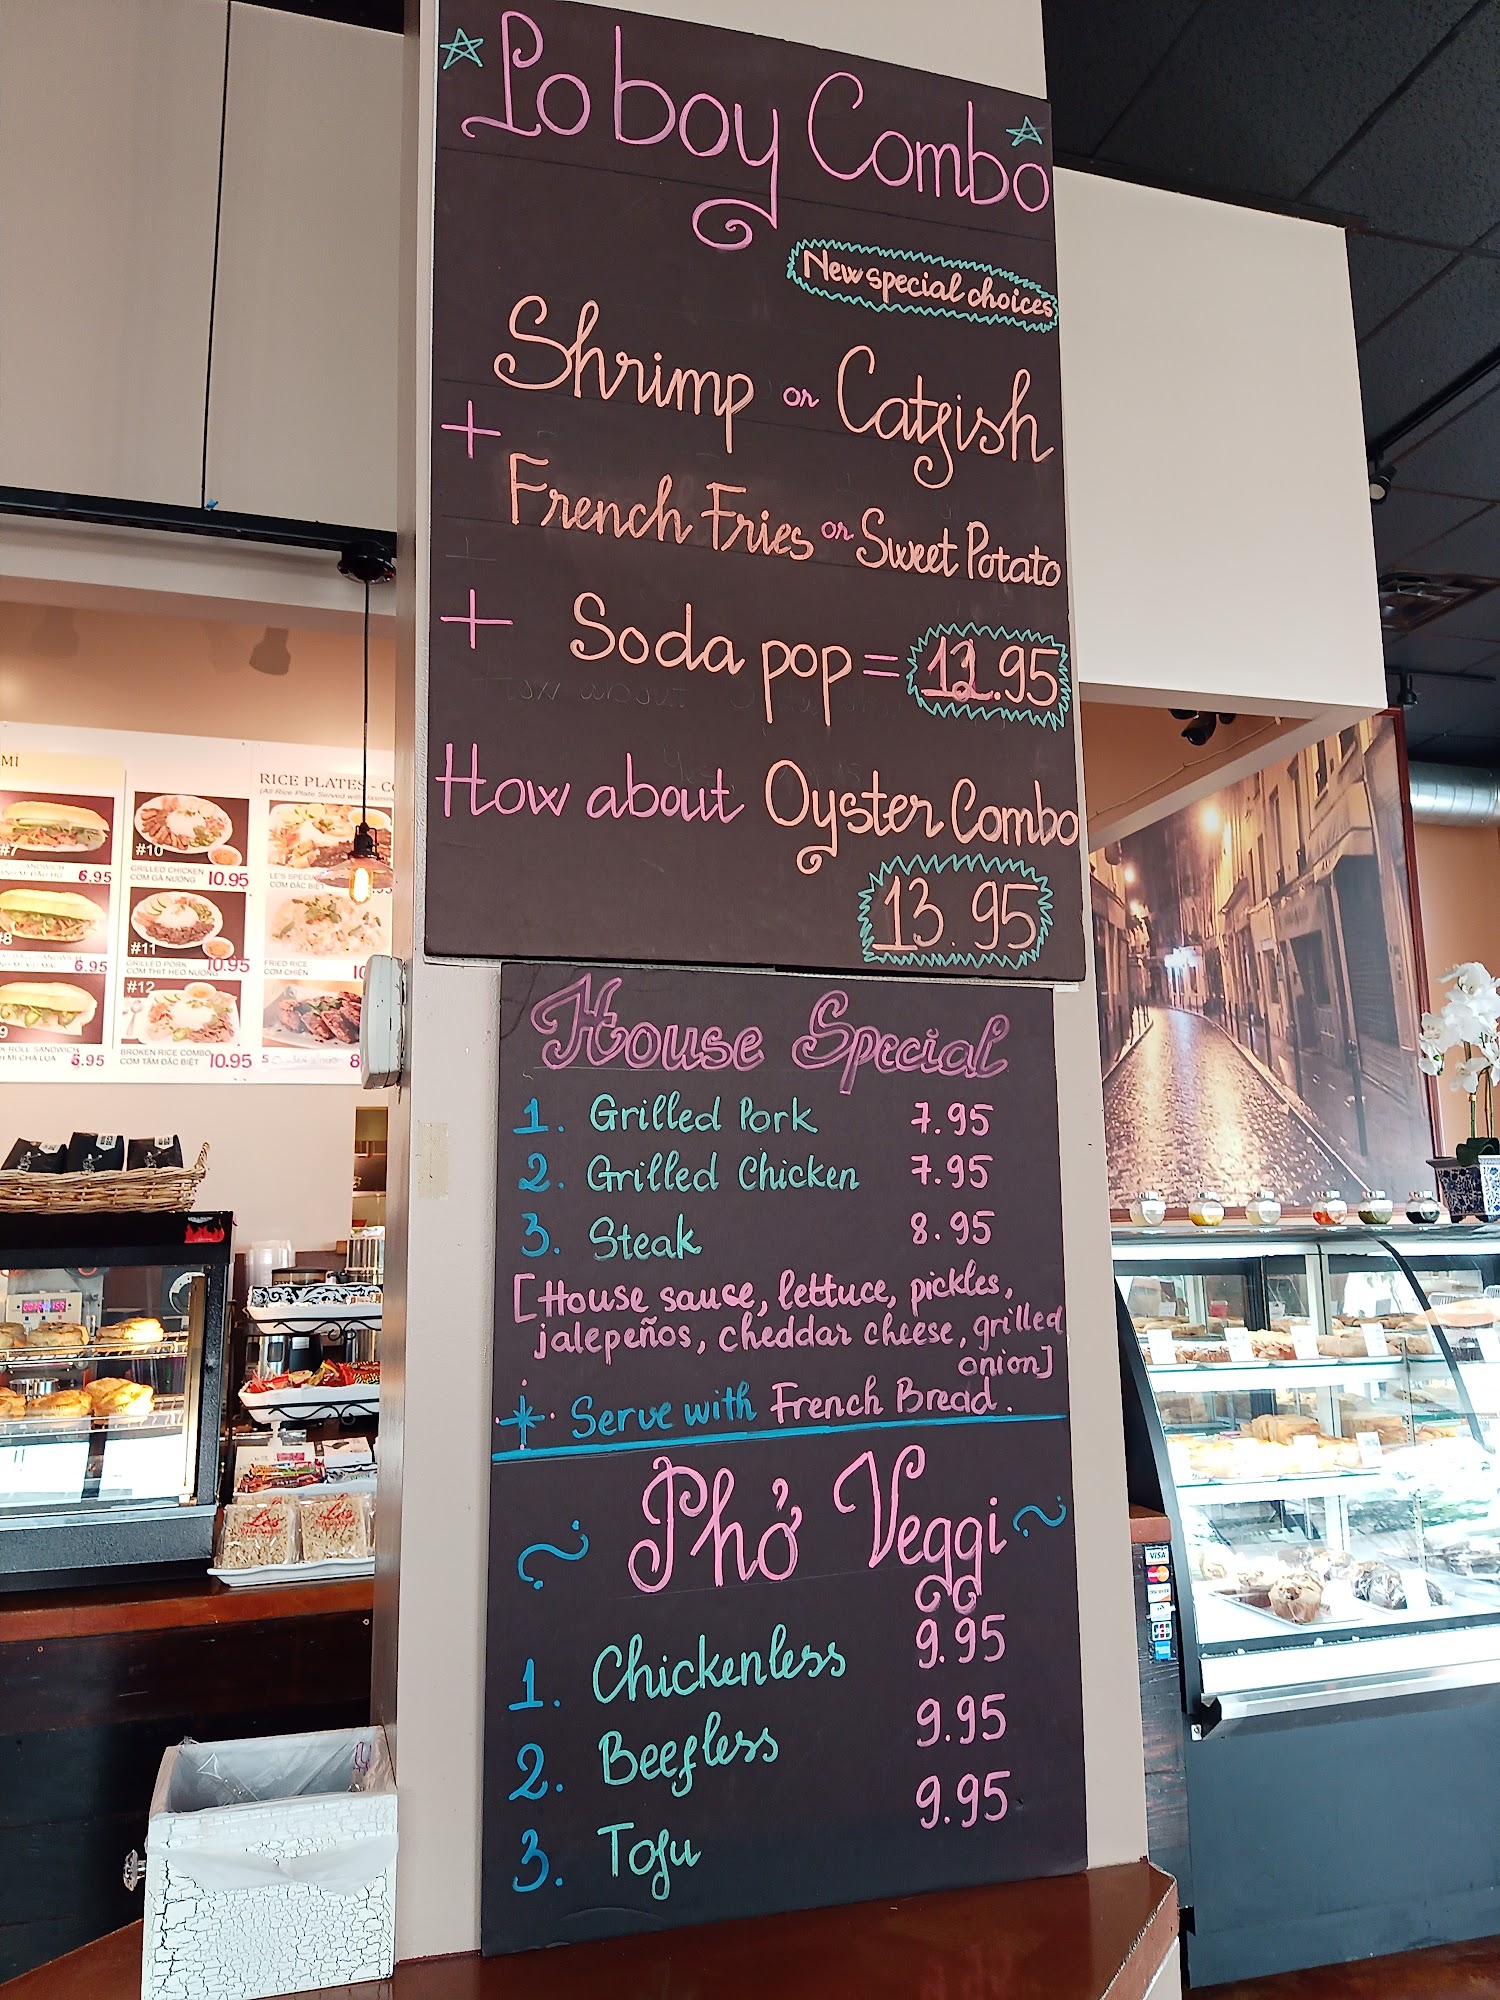 Po boy Combo
New special choices
Shrimp or Catfish
+ French Fries or Sweet Potato
+ Soda pop = 12.95
How about Oyster Combo
13.95
House Special
1. Grilled Pork 7.95
2. Grilled Chicken 7.95
3. Steak 8.95
[House sause, lettuce, pickles,
jalepeños, cheddar cheese, grilled
onion]
Serve with French Bread.
Phở Veggi
1. Chickenless 9.95
2. Beefless 9.95
3. Tofu 9.95
RICE PLATES - C
#7
6.95
#8
6.95
5.95
#10
GRILLED CHICKEN
CƠM GÀ NƯỚNG 10.95
#11
GRILLED PORK
CƠM THỊT HEO NƯỚNG 10.95
#12
BROKEN RICE COMBO
CƠM TẤM ĐẶC BIỆT 10.95
LE'S SPECI
CƠM ĐẶC BIỆT
FRIED RICE
CƠM CHIÊN 10
8
Le's
Le's
VISA
DISCOVER
JCB